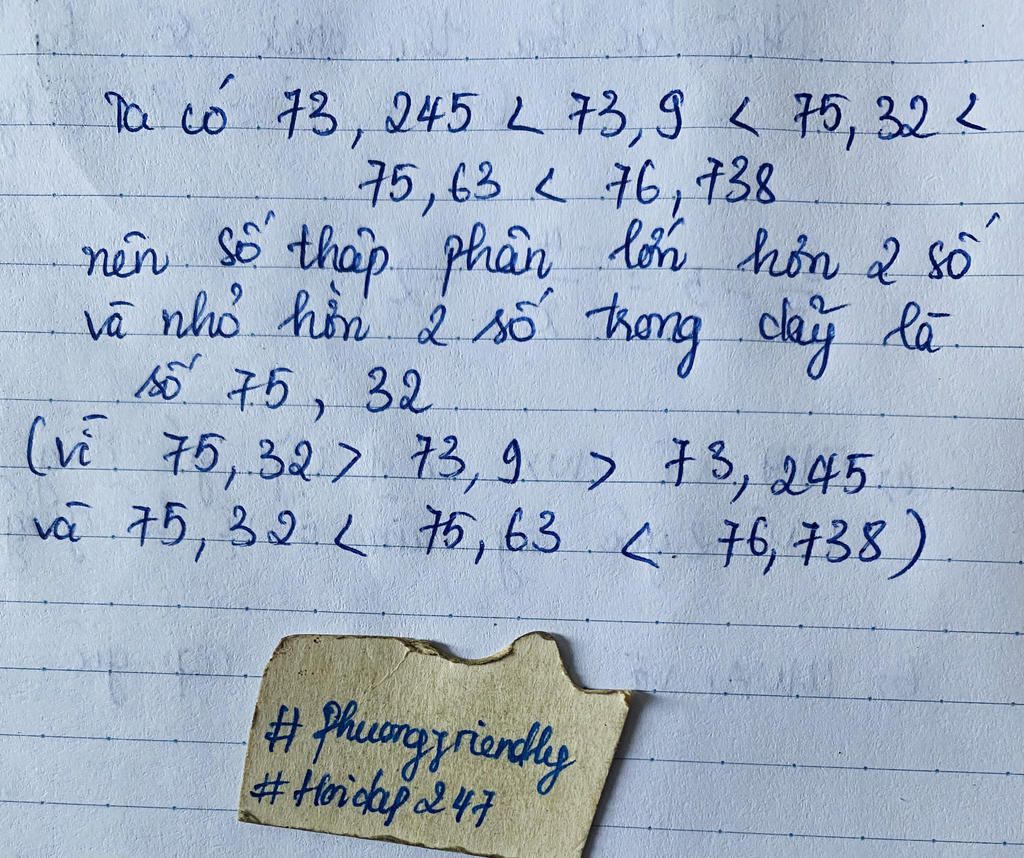 Ta có 73,245 < 73,9 < 75,32 <
75,63 < 76,738
nên số thập phân lớn hơn 2 số
và nhỏ hơn 2 số trong dãy là
số 75,32
(vì 75,32 > 73,9 > 73,245
và 75,32 < 75,63 < 76,738)
# Phuongfriendly
# Hoidap247